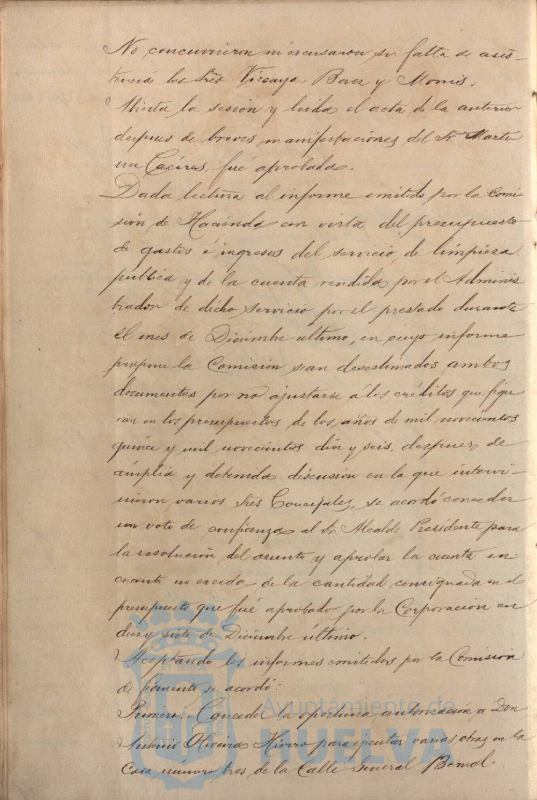 No concurrieron ni excusaron su falta de asis-
tencia los Sres Vizcaya Baca y Morris.
Abierta la sesión y leida el acta de la anterior
despues de breves manifestaciones del Sr. Marti
nez Cazáres, fue aprobada.
Dada lectura al informe emitido por la Comi
sión de Hacienda con vista del presupuesto
de gastos é ingresos del servicio de limpieza
publica y de la cuenta rendida por el Adminis
trador de dicho servicio por el prestado durante
el mes de Diciembre último, en cuyo informe
propone la Comisión sean desestimados ambos
documentos por no ajustarse á los créditos que figu
ran en los presupuestos de los años de mil novecientos
quince y mil novecientos diez y seis, despues de
amplia y detenida discusion en la que intervi-
nieron varios Sres Concejales, se acordó conceder
un voto de confianza al Sr. Alcalde Presidente para
la resolución del asunto y aprobar la cuenta en
cuanto no exceda de la cantidad consignada en el
presupuesto que fué aprobado por la Corporación en
diez y siete de Diciembre último.
Aceptando los informes emitidos por la Comision
de fomento se acordó:
Primero: Conceder la oportuna autorización a Don
Oliveira Hierro para ejecutar varias obras en la
Casa numero tres de la Calle General Bernal
Ayuntamiento de
HUELVA